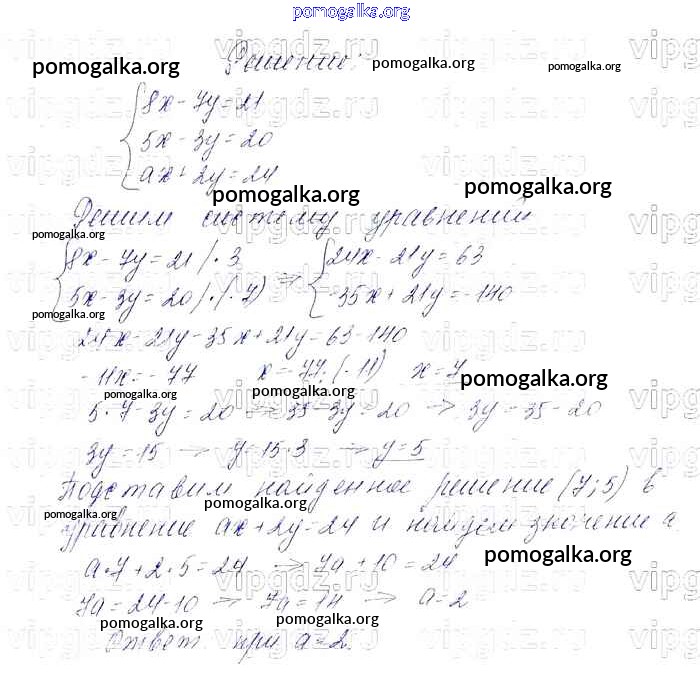 pomogalka.org
Решение:
pomogalka.org pomogalka.org pomogalka.org
8x - 7y = 21
5x - 3y = 20
ax + 2y = 24
pomogalka.org pomogalka.org
Решим систему уравнений
pomogalka.org
8x - 7y = 21 | · 3 24x - 21y = 63
5x - 3y = 20 | · (-7) ⇒ -35x + 21y = -140
pomogalka.org
24x - 21y - 35x + 21y = 63 - 140
-11x = -77 x = -77 : (-11) x = 7
pomogalka.org pomogalka.org pomogalka.org
5 · 7 - 3y = 20 → 35 - 3y = 20 → 3y = 35 - 20
3y = 15 → y = 15 : 3 → y = 5
Подставим найденное решение (7; 5) в
pomogalka.org pomogalka.org
уравнение ax + 2y = 24 и найдем значение a.
pomogalka.org
a · 7 + 2 · 5 = 24 → 7a + 10 = 24
7a = 24 - 10 → 7a = 14 → a = 2
pomogalka.org pomogalka.org
Ответ: при a = 2.
vipgdz.ru